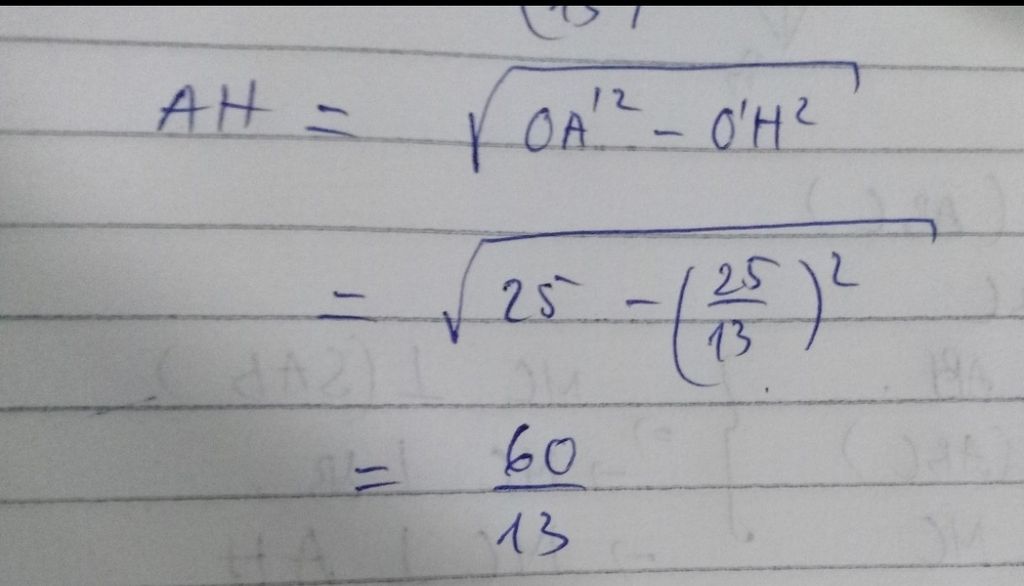 AH = √(OA'² - O'H²)
= √(25 - (25/13)²)
= 60/13